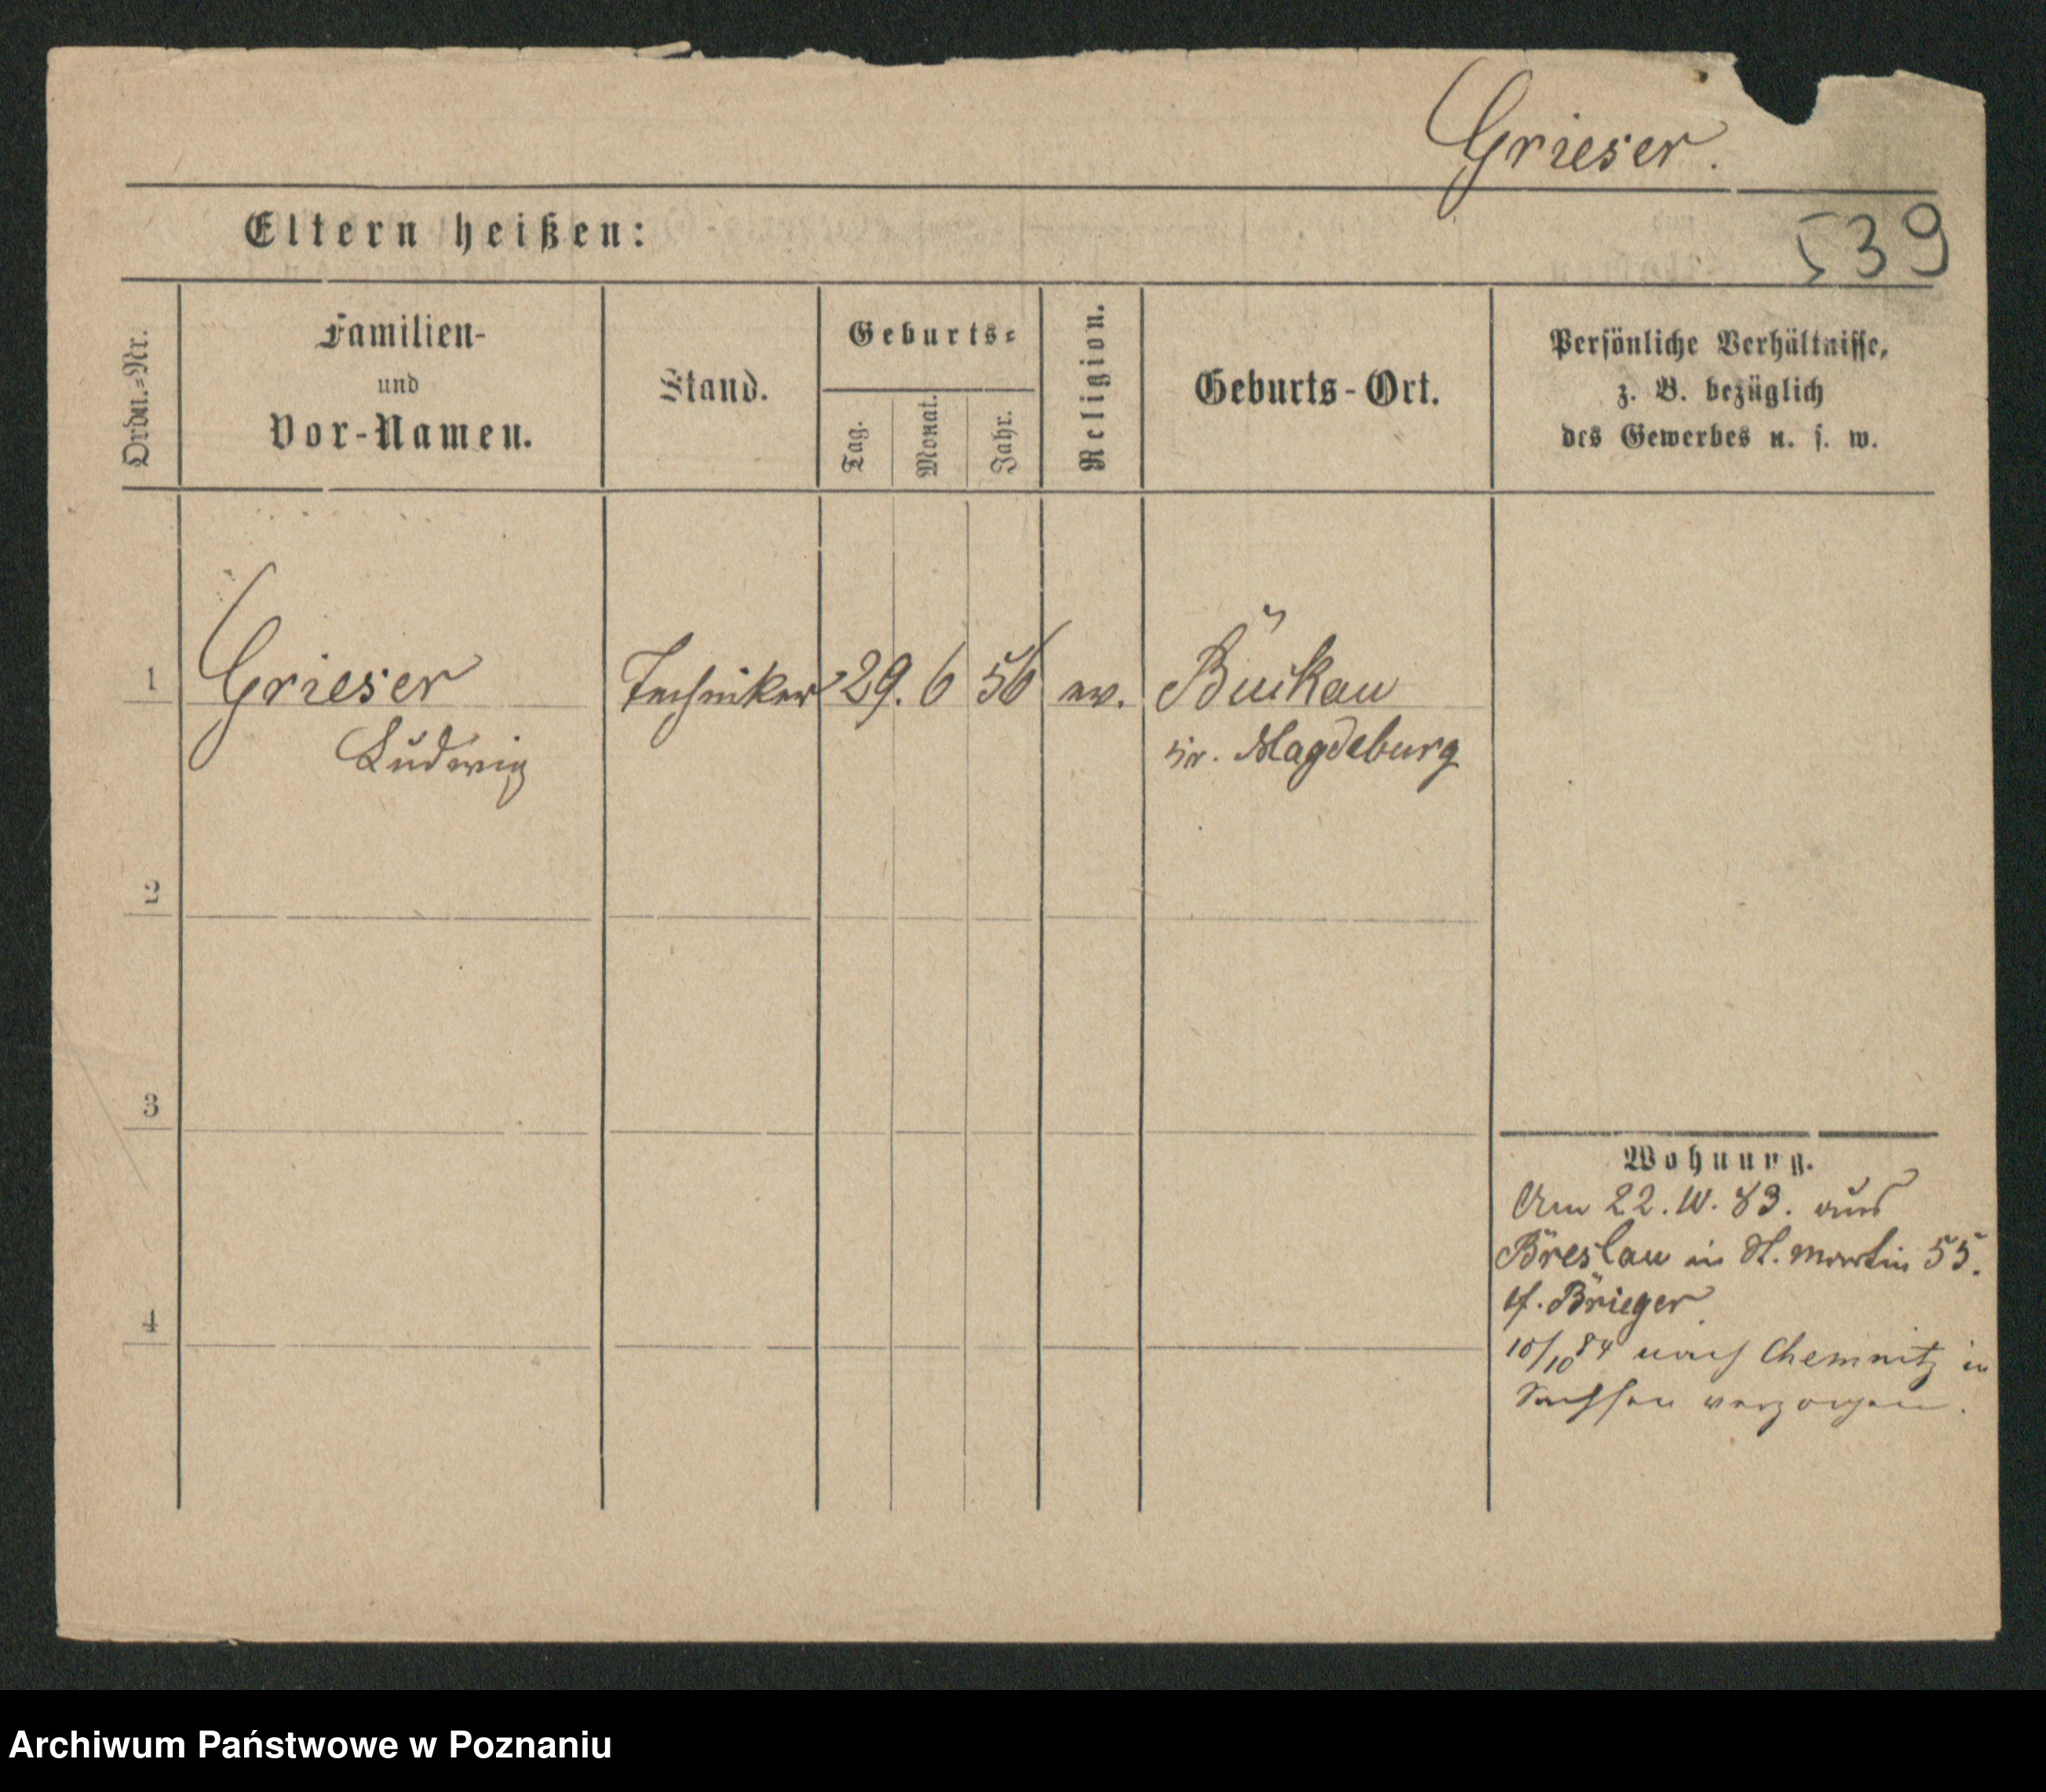 Grieser.
Eltern heißen:
539
Ordn.=Nr.
Familien-
und
Vor-Namen.
Stand.
Geburts=
Tag.
Monat.
Jahr.
Religion.
Geburts-Ort.
Persönliche Verhältnisse,
z. B. bezüglich
des Gewerbes u. s. w.
1
Grieser
Ludwig
Techniker
29.
6
56
ev.
Buckau
Magdeburg
2
3
4
Wohnung.
Am 22. 10. 83. aus
Breslau in St. Martin 55.
cf. Brieger.
10/10 84 nach Chemnitz in
Sachsen verzogen.
Archiwum Państwowe w Poznaniu